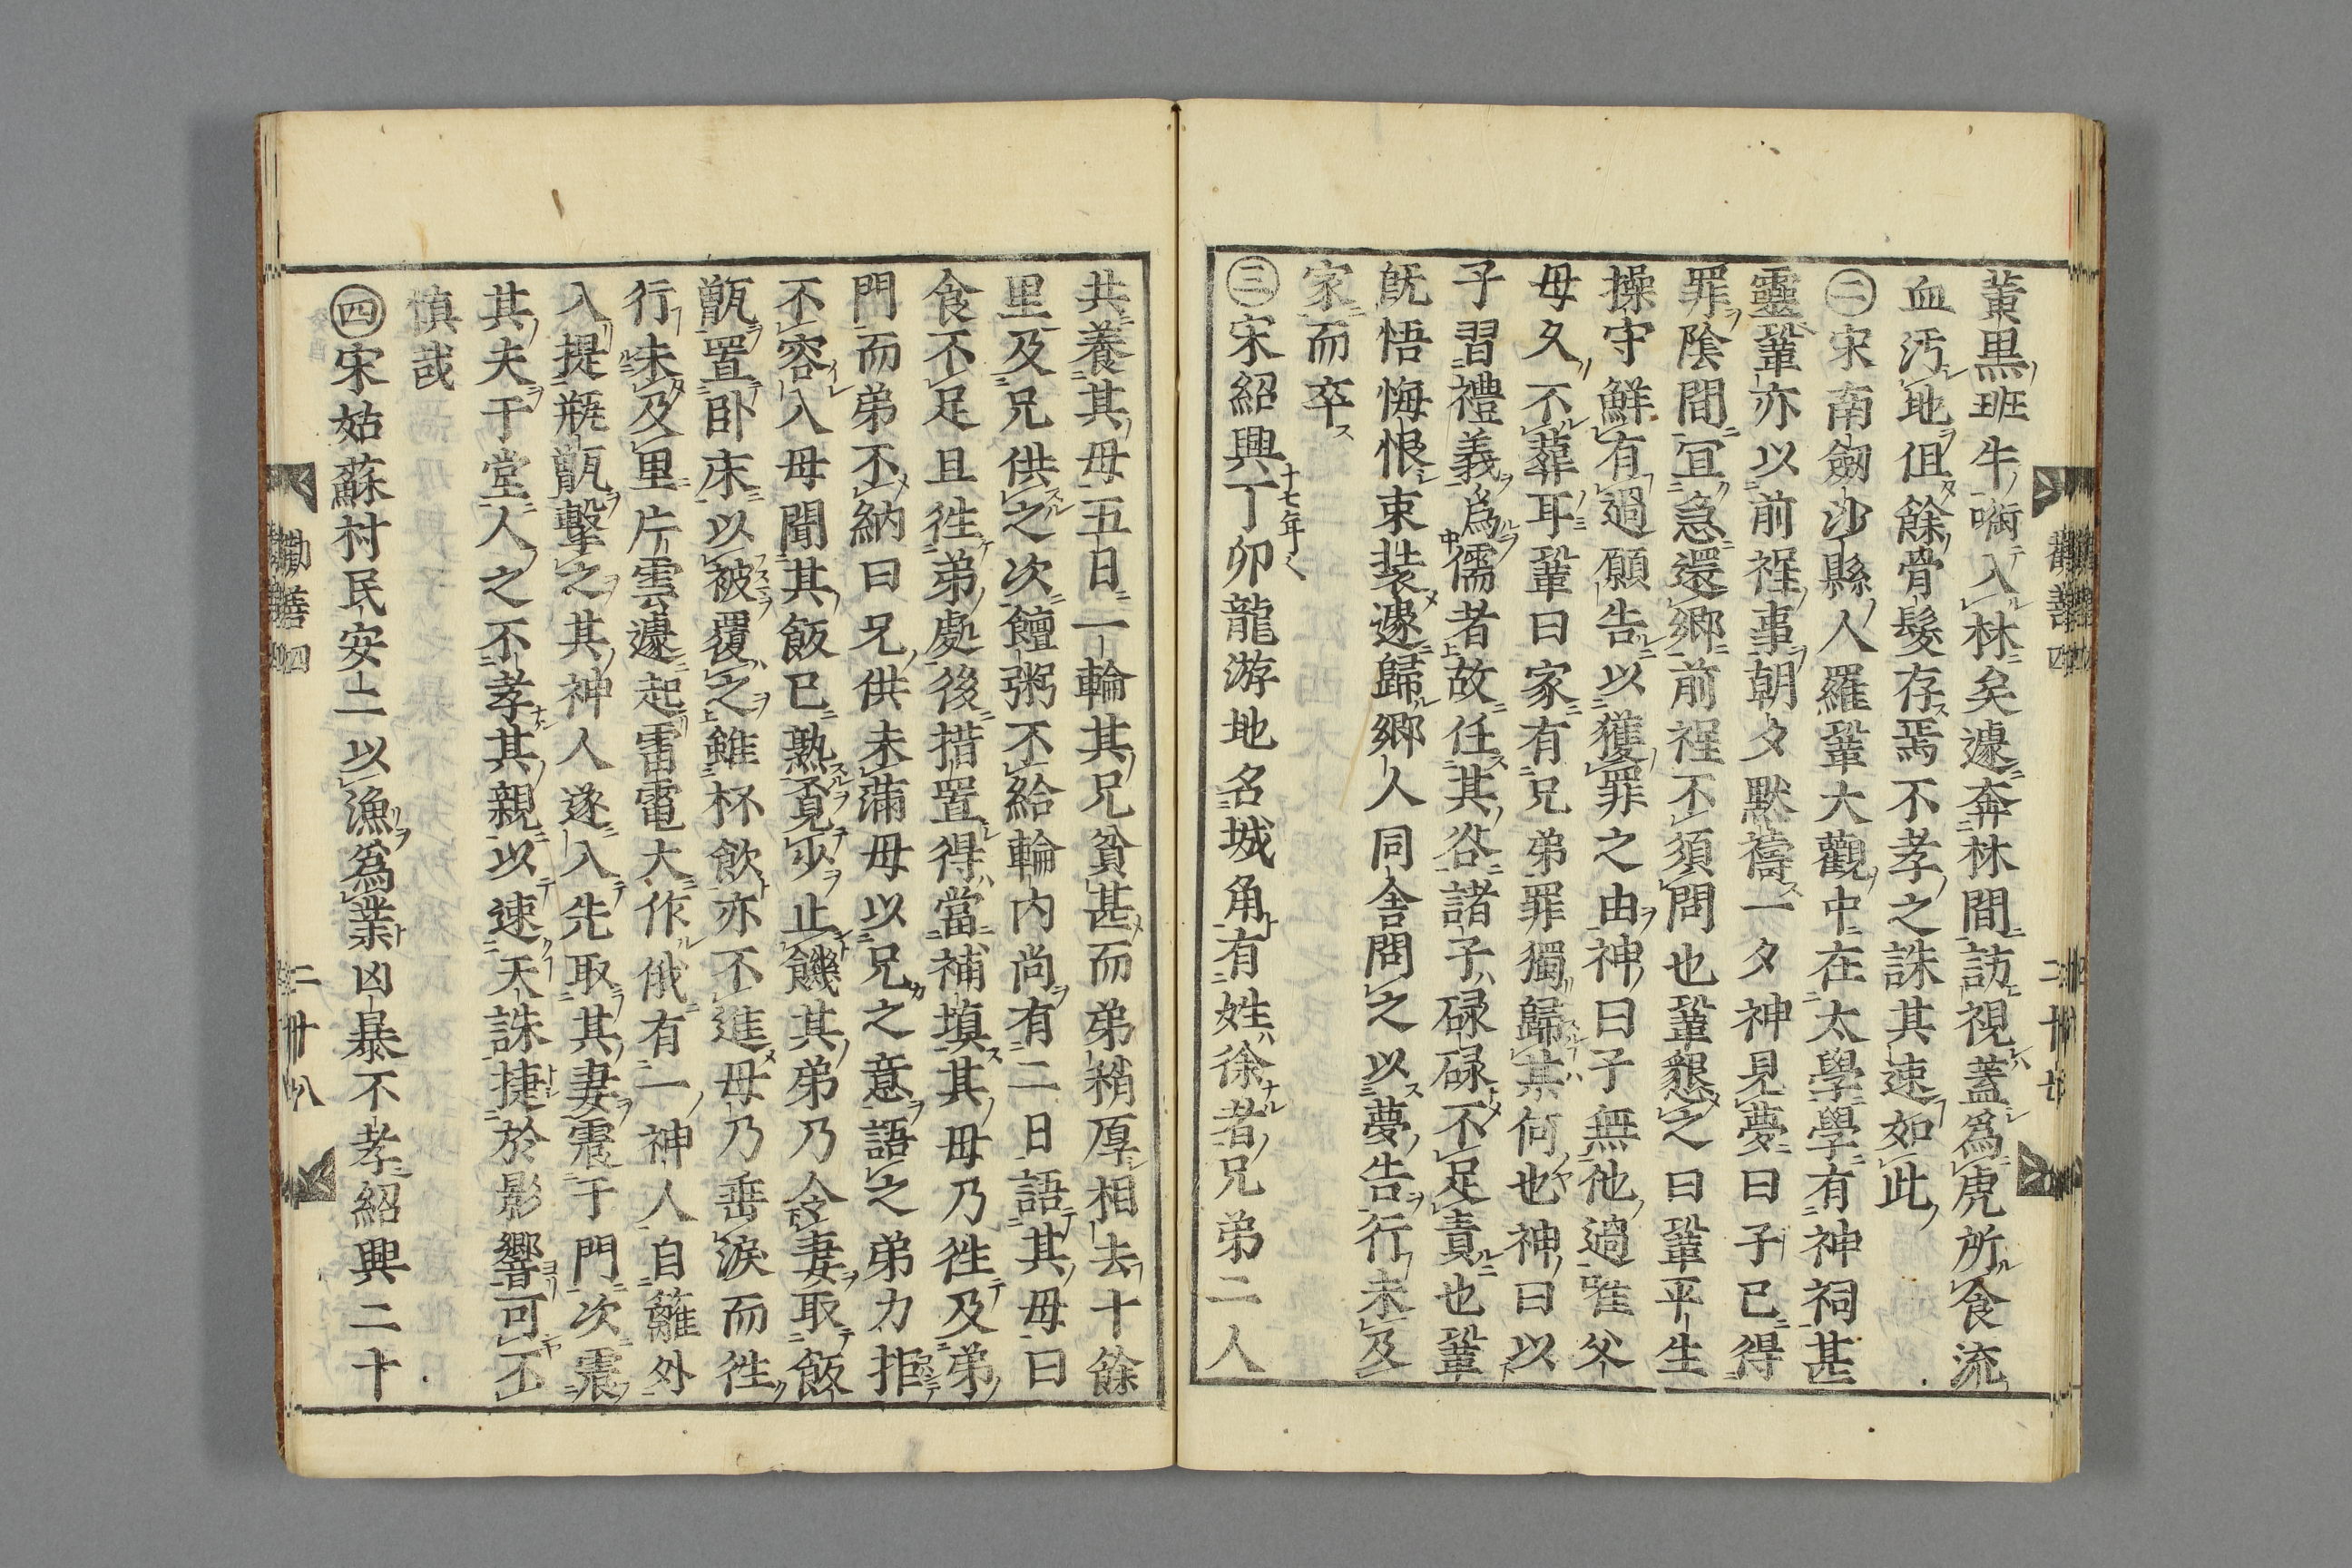 董黒班牛㗸入林矣遽奔林間訪視蓋爲虎所食流
血汚地但餘骨髮存焉不孝之誅其速如此
㊁宋南劔沙縣人羅鞏大觀中在太學學有神祠甚
靈鞏亦以前程事朝夕默禱一夕神見夢曰子已得
罪陰間冝急還鄉前程不須問也鞏懇之曰鞏平生
操守鮮有過願告以獲罪之由神曰子無他過唯父
母久不葬耳鞏曰家有兄弟罪獨歸某何也神曰以
子習禮義爲儒者故任其咎諸子碌碌不足責也鞏
旣悟悔恨束裝遽歸鄉人同舍問之以夢告行未及
家而卒
㊂宋紹興十七年丁卯龍游地名城角有姓徐者兄弟二人
共養其母五日一輪其兄貧甚而弟稍厚相去十餘
里及兄供之次饘粥不給輪内尚有二日語其母曰
食不足且徃弟處後措置得當補塡其母乃徃及弟
門而弟不納曰兄供未滿母以兄之意語之弟力拒
不容入母聞其飯已熟覔少止饑其弟乃令妻取飯
甑置卧床以被覆之雖杯飮亦不進母乃垂淚而徃
行未及里片雲遽起雷電大作俄有一神人自籬外
入提瓶甑擊之其神人遂入先取其妻震于門次震
其夫于堂人之不孝其親以速天誅捷於影響可不
愼哉
㊃宋姑蘇村民安二以漁爲業凶暴不孝紹興二十
勸善四
二十八